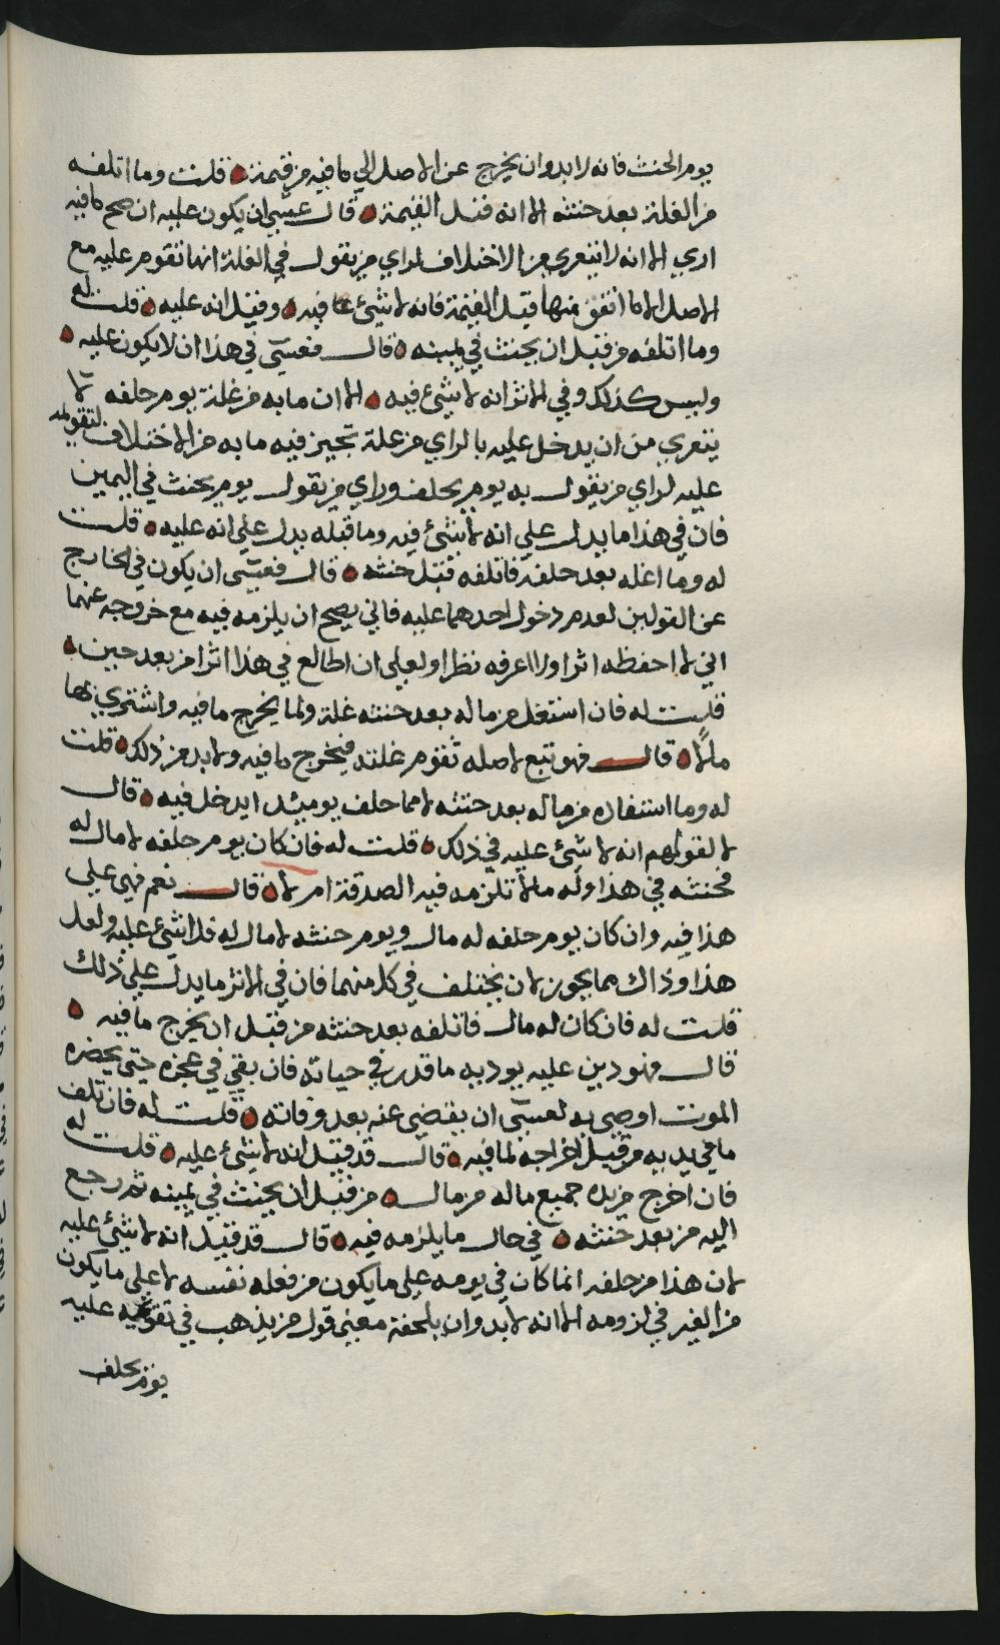 يوم الحنث فانه لا بد وان يخرج عن الاصل الي ما فيه من قيمة قلت وما اتلفه
من الغلة بعد حنثه الا انه قبل القيمة قال عسي ان يكون عليه ان صح ما فيه
اري الا انه لا يتعري من الاختلاف لراي من يقول في الغلة انها تقوم عليه مع
الاصل الا ما انفق منها قبل القيمة فانه لا شيء فيه وقيل انه عليه قلت له
وما اتلفه من قبل ان يحنث في يمينه قال فعسي في هذا ان لا يكون عليه
وليس كذلك وفي الاثر انه لا شيء فيه الا ان ما به من غلة يوم حلفه لا
يتعري من ان يدخل عليه بالراي من علة تجيز فيه ما به من الاختلاف لتقويمه
عليه لراي من يقول به يوم يحلف وراي من يقول يوم يحنث في اليمين
فان في هذا ما يدل علي انه لا شيء فيه وما قبله يدل علي انه عليه قلت
له وما اغله بعد حلفه فاتلفه قبل حنثه قال فعسي ان يكون في الخارج
عن القولين لعدم دخول احدهما عليه فاني يصح ان يلزمه فيه مع خروجه عنهما
اني لا احفظه اثرا ولا اعرفه نظرا ولعلي ان اطالع في هذا اثرا من بعد حين
قلت له فان استغل من ماله بعد حنثه غلة ولما يخرج ما فيه واشتري بها
مالا قال فهو تبع لاصله تقوم غلته فيخرج ما فيه ولا بد من ذلك قلت
له وما استفاده من ماله بعد حنثه لا مما حلف يومئذ ايدخل فيه قال
لا لقولهم انه لا شيء عليه في ذلك قلت له فان كان يوم حلفه لا مال له
فحنثه في هذا وله مال اتلزمه فيه الصدقة ام لا قال نعم فهي علي
هذا فيه وان كان يوم حلفه له مال ويوم حنثه لا مال له فلا شيء عليه ولعل
هذا وذاك مما يجوز لان يختلف في كل منهما فان في الاثر ما يدل علي ذلك
قلت له فان كان له مال فاتلفه بعد حنثه من قبل ان يخرج ما فيه
قال فهو دين عليه يوديه ما قدر في حياته فان بقي في عجزه حتي يحضره
الموت اوصي به لعسي ان يقضي عنه بعد وفاته قلت له فان تلف
ما في يديه من قبل اخراجه لما فيه قال قد قيل انه لا شيء عليه قلت له
فان اخرج من يده جميع ماله من مال من قبل ان يحنث في يمينه ثم رجع
اليه من بعد حنثه في حال ما يلزمه فيه قال قد قيل انه لا شيء عليه
لان هذا من حلفه انما كان في يومه علي ما يكون من فعله نفسه لا علي ما يكون
من الغير في لزومه الا انه لا بد وان يلحقه معني قول من يذهب في تقويمه عليه
يوم يحلف